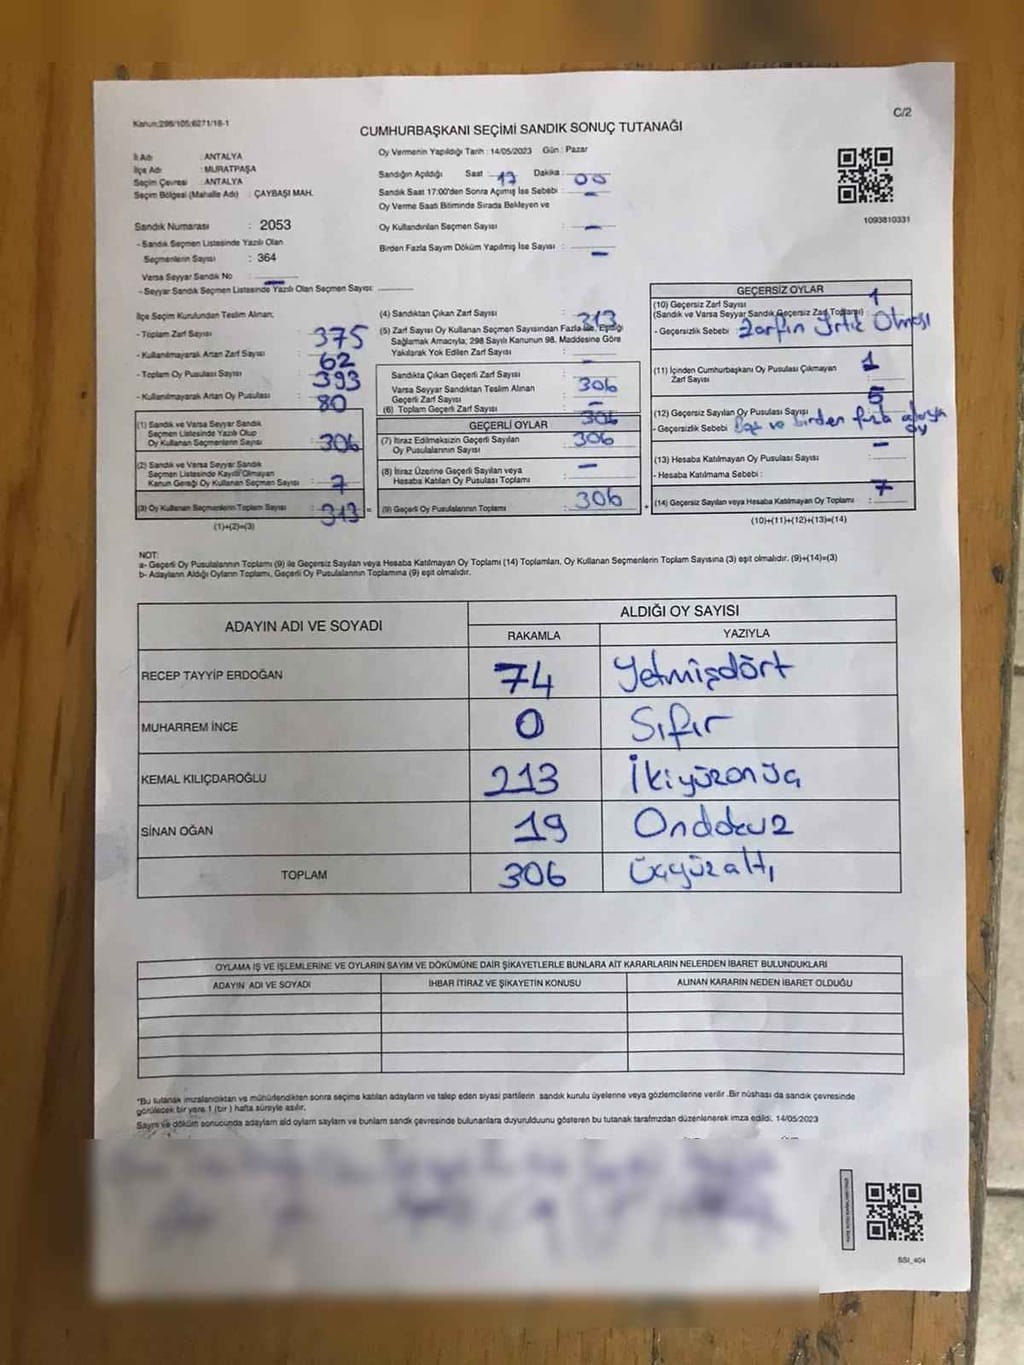 Kanun:298/105;6271/18-1
C/2
CUMHURBAŞKANI SEÇİMİ SANDIK SONUÇ TUTANAĞI
İl Adı : ANTALYA
İlçe Adı : MURATPAŞA
Seçim Çevresi : ANTALYA
Seçim Bölgesi (Mahalle Adı) : ÇAYBAŞI MAH.
Sandık Numarası : 2053
- Sandık Seçmen Listesinde Yazılı Olan
Seçmenlerin Sayısı : 364
Varsa Seyyar Sandık No : —
- Seyyar Sandık Seçmen Listesinde Yazılı Olan Seçmen Sayısı:
Oy Vermenin Yapıldığı Tarih : 14/05/2023 Gün : Pazar
Sandığın Açıldığı Saat : 17 Dakika : 00
Sandık Saat 17:00'den Sonra Açımış İse Sebebi : —
Oy Verme Saati Bitiminde Sırada Bekleyen ve
Oy Kullandırılan Seçmen Sayısı : —
Birden Fazla Sayım Döküm Yapılmış İse Sayısı : —
1093810331
İlçe Seçim Kurulundan Teslim Alınan;
- Toplam Zarf Sayısı : 375
- Kullanılmayarak Artan Zarf Sayısı : 62
- Toplam Oy Pusulası Sayısı : 393
- Kullanılmayarak Artan Oy Pusulası : 80
(1) Sandık ve Varsa Seyyar Sandık
Seçmen Listesinde Yazılı Olup
Oy Kullanan Seçmenlerin Sayısı : 306
(2) Sandık ve Varsa Seyyar Sandık
Seçmen Listesinde Kayıtlı Olmayan
Kanun Gereği Oy Kullanan Seçmen Sayısı : 7
(3) Oy Kullanan Seçmenlerin Toplam Sayısı : 313 =
(1)+(2)=(3)
(4) Sandıktan Çıkan Zarf Sayısı : 313
(5) Zarf Sayısı Oy Kullanan Seçmen Sayısından Fazla İse, Eşitliği
Sağlamak Amacıyla, 298 Sayılı Kanunun 98. Maddesine Göre
Yakılarak Yok Edilen Zarf Sayısı : —
Sandıkta Çıkan Geçerli Zarf Sayısı : 306
Varsa Seyyar Sandıktan Teslim Alınan
Geçerli Zarf Sayısı : —
(6) Toplam Geçerli Zarf Sayısı : 306
GEÇERLİ OYLAR
(7) İtiraz Edilmeksizin Geçerli Sayılan
Oy Pusulalarının Sayısı : 306
(8) İtiraz Üzerine Geçerli Sayılan veya
Hesaba Katılan Oy Pusulası Toplamı : —
(9) Geçerli Oy Pusulalarının Toplamı : 306 +
GEÇERSİZ OYLAR
(10) Geçersiz Zarf Sayısı 1
(Sandık ve Varsa Seyyar Sandık Geçersiz Zarf Toplamı) :
- Geçersizlik Sebebi : Zarfın Yırtık Olması
(11) İçinden Cumhurbaşkanı Oy Pusulası Çıkmayan
Zarf Sayısı : 1
(12) Geçersiz Sayılan Oy Pusulası Sayısı : 5
- Geçersizlik Sebebi : Boş ve birden fazla adaya oy
(13) Hesaba Katılmayan Oy Pusulası Sayısı : —
- Hesaba Katılmama Sebebi :
(14) Geçersiz Sayılan veya Hesaba Katılmayan Oy Toplamı : 7
(10)+(11)+(12)+(13)=(14)
NOT:
a- Geçerli Oy Pusulalarının Toplamı (9) ile Geçersiz Sayılan veya Hesaba Katılmayan Oy Toplamı (14) Toplamları, Oy Kullanan Seçmenlerin Toplam Sayısına (3) eşit olmalıdır. (9)+(14)=(3)
b- Adayların Aldığı Oyların Toplamı, Geçerli Oy Pusulalarının Toplamına (9) eşit olmalıdır.
ADAYIN ADI VE SOYADI ALDIĞI OY SAYISI
RAKAMLA YAZIYLA
RECEP TAYYİP ERDOĞAN 74 Yetmişdört
MUHARREM İNCE 0 Sıfır
KEMAL KILIÇDAROĞLU 213 İkiyüzonüç
SİNAN OĞAN 19 Ondokuz
TOPLAM 306 Üçyüzaltı
OYLAMA İŞ VE İŞLEMLERİNE VE OYLARIN SAYIM VE DÖKÜMÜNE DAİR ŞİKAYETLERLE BUNLARA AİT KARARLARIN NELERDEN İBARET BULUNDUKLARI
ADAYIN ADI VE SOYADI İHBAR İTİRAZ VE ŞİKAYETİN KONUSU ALINAN KARARIN NEDEN İBARET OLDUĞU
*Bu tutanak imzalandıktan ve mühürlendikten sonra seçime katılan adayların ve talep eden siyasi partilerin sandık kurulu üyelerine veya gözlemcilerine verilir .Bir nüshası da sandık çevresinde
görülecek bir yere 1 (bir ) hafta süreyle asılır.
Sayım ve döküm sonucunda adayların aldığı oyların sayıları ve bunların sandık çevresinde bulunanlara duyurulduğunu gösteren bu tutanak tarafımızdan düzenlenerek imza edildi. 14/05/2023
SSI_404